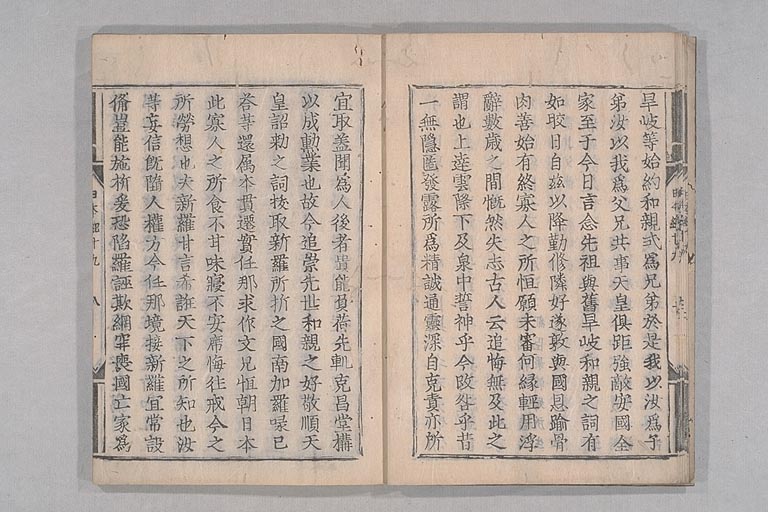 旱岐等始約和親式爲兄弟於是我以汝爲子
弟汝以我爲父兄共事天皇俱距強敵安國全
家至于今日言念先祖與舊旱岐和親之詞有
如皎日自茲以降勤修隣好遂敦與國恩踰骨
肉善始有終寡人之所恒願未審何緣輕用浮
辭數歲之間慨然失志古人云追悔無及此之
謂也上達雲際下及泉中誓神乎今改咎乎昔
一無隱匿發露所爲精誠通靈深自克責亦所
宜取蓋聞爲人後者貴能負荷先軌克昌堂構
以成勳業也故今追崇先世和親之好敬順天
皇詔勅之詞拔取新羅所折之國南加羅㖨己
呑等還属本貫遷實任那永作父兄恒朝日本
此寡人之所食不甘味寢不安席悔往戒今之
所勞想也夫新羅甘言希誑天下之所知也汝
等妄信既墮人權方今任那境接新羅宜常設
備豈能施柝爰恐陷羅誣欺網穽喪國亡家爲
日本紀十九
八